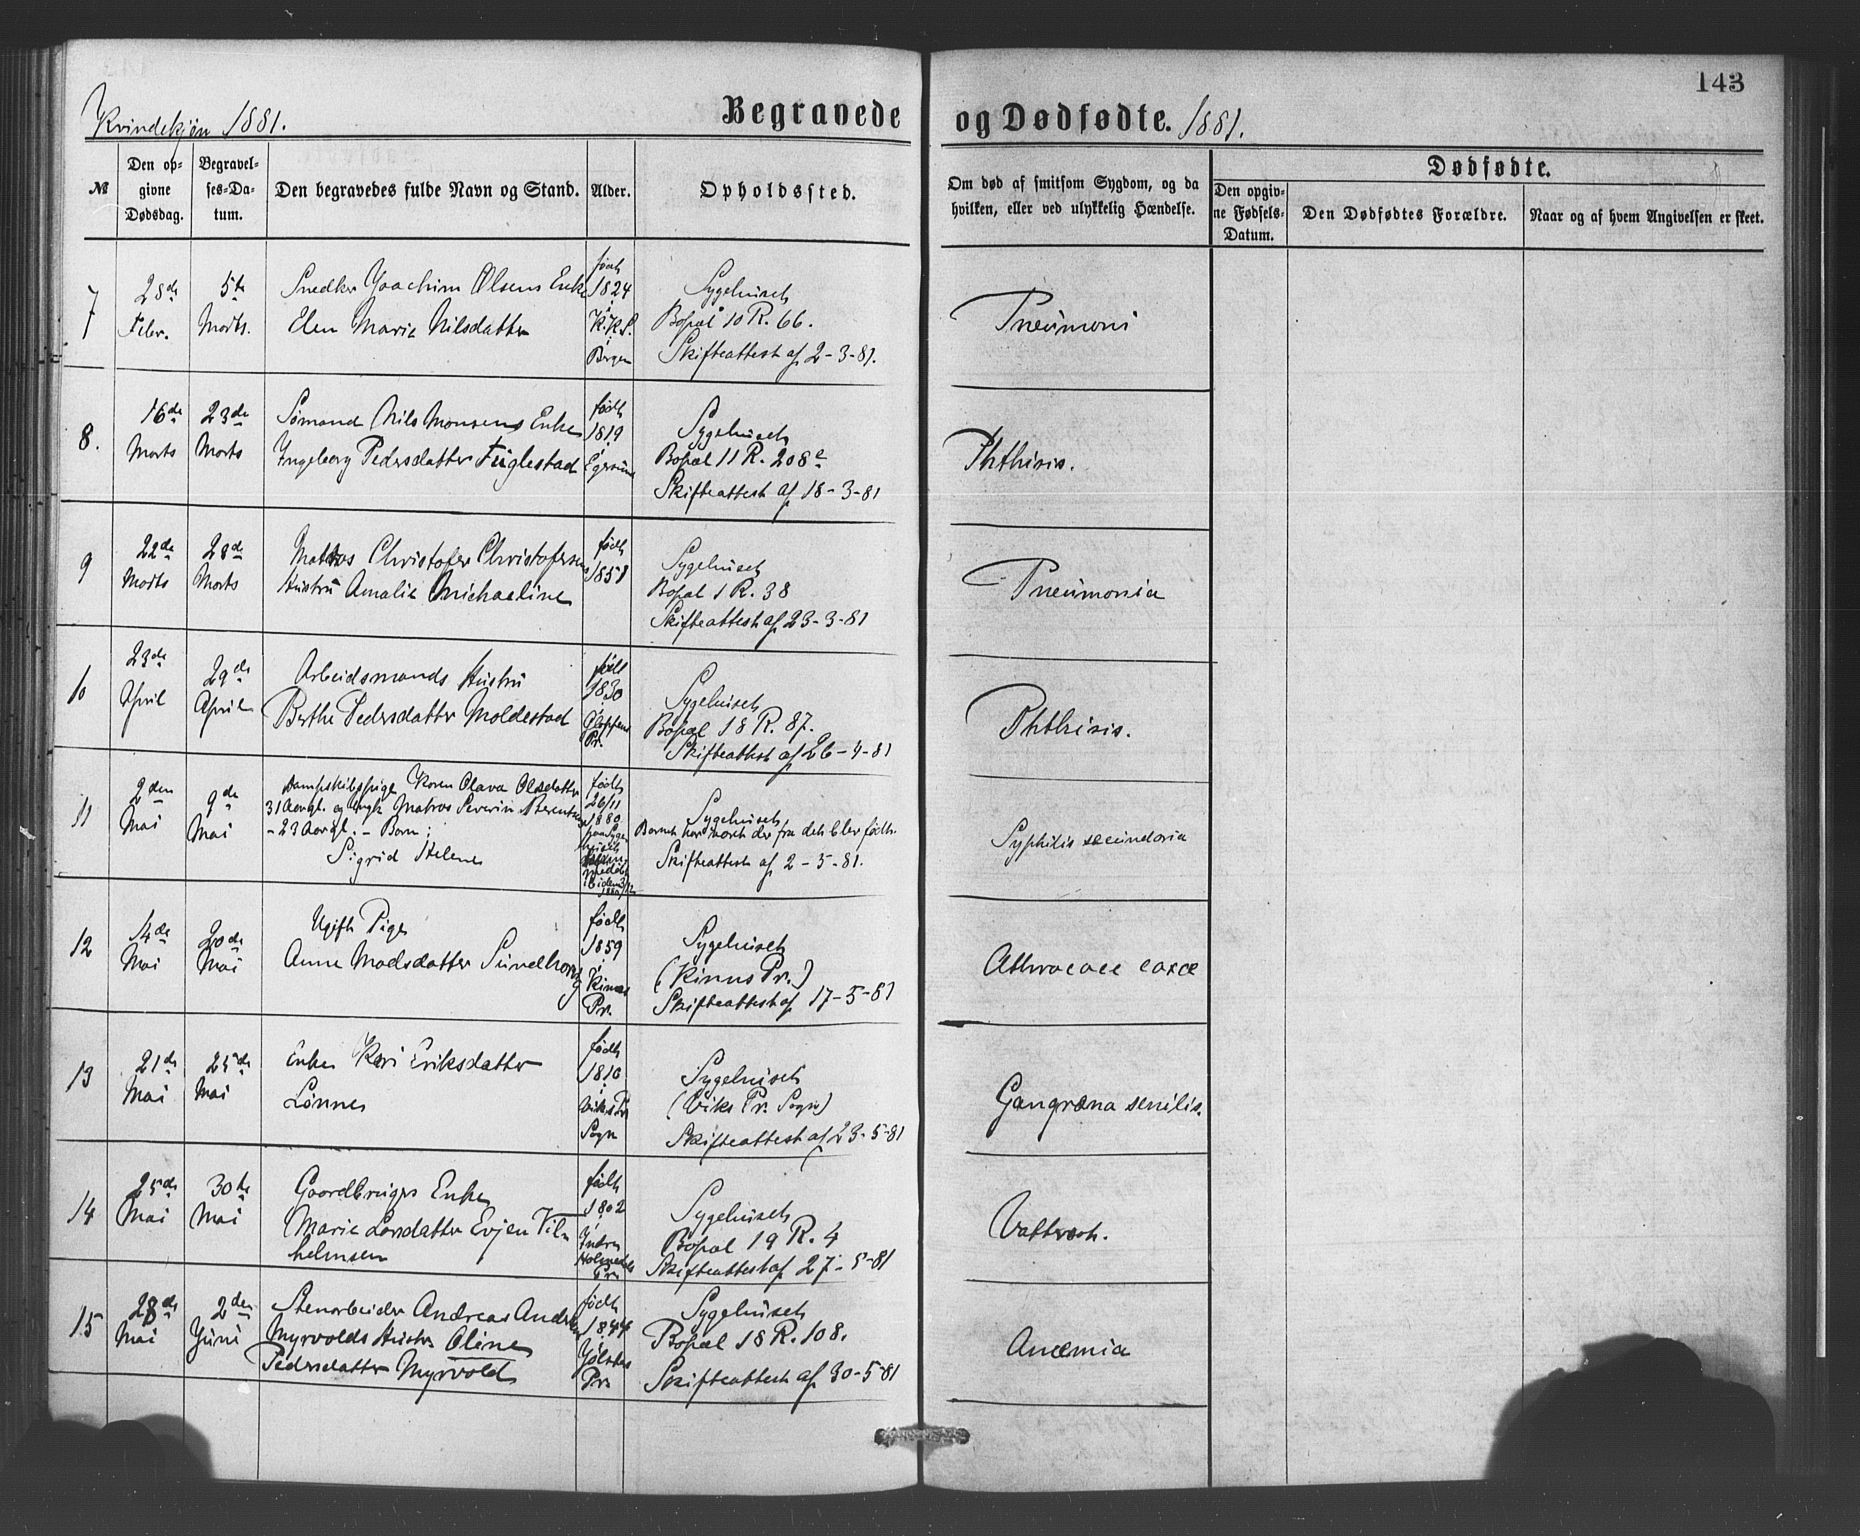 143
Kvindekjøn 1881.
Begravede og Dødfødte. 1881.
№
Den opgivne Dødsdag.
Begravelses-Datum.
Den begravedes fulde Navn og Stand.
Alder.
Opholdssted.
Om død af smitsom Sygdom, og da hvilken, eller ved ulykkelig Hændelse.
Dødfødte.
Den opgivne Fødsels-Datum.
Den Dødfødtes Forældre.
Naar og af hvem Angivelsen er skeet.
7
28de Febr.
5te Marts.
Snedker Joachim Olsens Enke
Elen Marie Nilsdatter
født 1824 i K.K.S. Bergen
Sygehuset
Bopæl 10 R. 66.
Skifteattest af 2-3-81.
Pneumoni
8.
16de Marts
23de Marts
Sømand Nils Monsens Enke
Ingeborg Pedersdatter Fuglestad
født 1819 i Egersund
Sygehuset
Bopæl 11 R. 208c
Skifteattest af 18-3-81
Phthisis.
9
22de Marts
28de Marts
Matros Christofer Christofersens
Hustru Amalie Michaeline
født 1858
Sygehuset
Bopæl 1 R. 38
Skifteattest af 23-3-81
Pneumonia
10
23de April
29de April
Arbeidsmands Hustru
Berthe Pedersdatter Moldestad
født 1830 i Gloppens Pr.
Sygehuset
Bopæl 18 R. 87.
Skifteattest af 26-4-81
Phthisis.
11
2den Mai
9de Mai
Dampskibspige Karen Olava Olsdatter
31 Aar gl. og Ungk. Matros Severin Berentsen
- 23 Aar gl. - Barn:
Sigrid Helene
født 26/11 1880
Sygehuset
Barnet har været der fra det blev født.
Skifteattest af 2-5-81.
Syphilis secundaria
12
14de Mai
20de Mai
Ugift Pige
Anne Madsdatter Sundhoug
født 1859 i Kinns Pr.
Sygehuset
(Kinns Pr.)
Skifteattest af 17-5-81
Athrocace coxæ
13
21de Mai
25de Mai
Enke Kari Eriksdatter
Lønnes
født 1810 i Viks Pr. Sogn
Sygehuset
(Viks Pr. Sogn)
Skifteattest af 23-5-81
Gangræna senilis.
14
25de Mai
30te Mai
Gaardbrugers Enke
Marie Larsdatter Evjen Vilhelmsen
født 1802 i Indre Holmedals Pr.
Sygehuset
Bopæl 19 R. 4
Skifteattest af 27-5-81
Vattersot.
15
28de Mai
2den Juni
Stenarbeider Andreas Anders
Myrvolds Hustru Oline
Pedersdatter Myrvold
født 1844 i Jølsters Pr.
Sygehuset
Bopæl 18 R. 108.
Skifteattest af 30-5-81
Anæmia